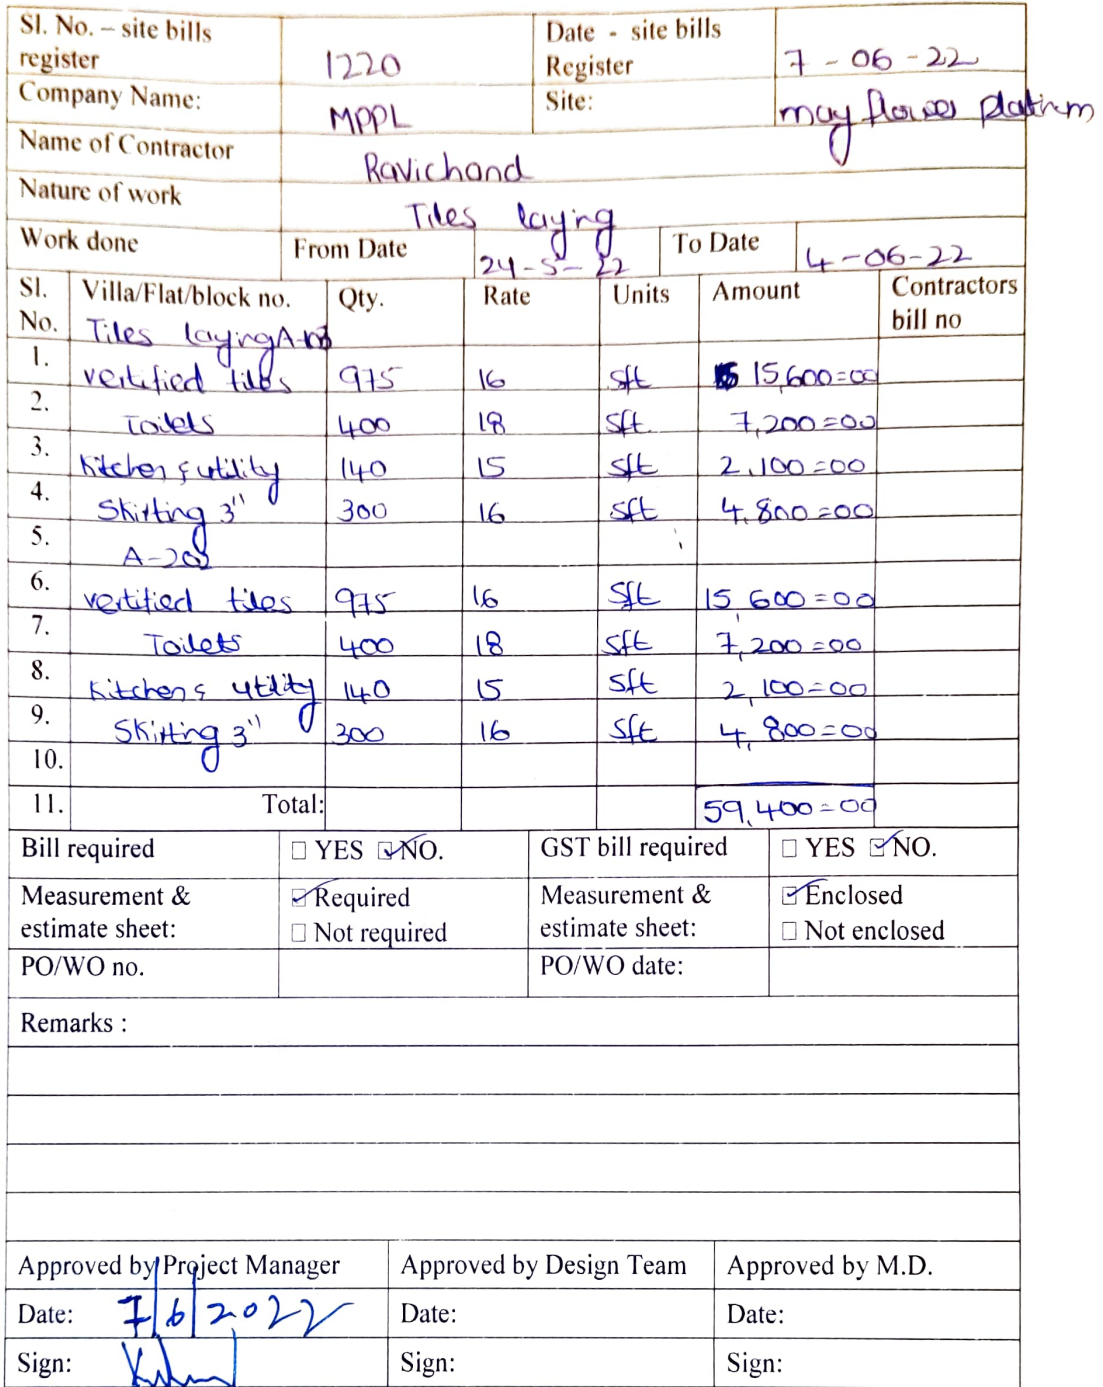 Sl. No. – site bills register 1220 Date - site bills Register 7-06-22
Company Name: MPPL Site: may flower platinum
Name of Contractor Ravichand
Nature of work Tiles laying
Work done From Date 24-5-22 To Date 4-06-22
Sl. No. Villa/Flat/block no. Qty. Rate Units Amount Contractors bill no
Tiles laying
1. vertified tiles 975 16 sft 15,600=00
2. Toilets 400 18 sft 7,200=00
3. Kitchen & utility 140 15 sft 2,100=00
4. Skirting 3" 300 16 sft 4,800=00
5.
6. vertified tiles 975 16 sft 15,600=00
7. Toilets 400 18 sft 7,200=00
8. Kitchen & utility 140 15 sft 2,100=00
9. Skirting 3" 300 16 sft 4,800=00
10.
11. Total: 59,400=00
Bill required □ YES ☑ NO. GST bill required □ YES ☑ NO.
Measurement & estimate sheet: ☑ Required □ Not required Measurement & estimate sheet: ☑ Enclosed □ Not enclosed
PO/WO no. PO/WO date:
Remarks :
Approved by Project Manager Approved by Design Team Approved by M.D.
Date: 7/6/2022 Date: Date:
Sign: Sign: Sign: